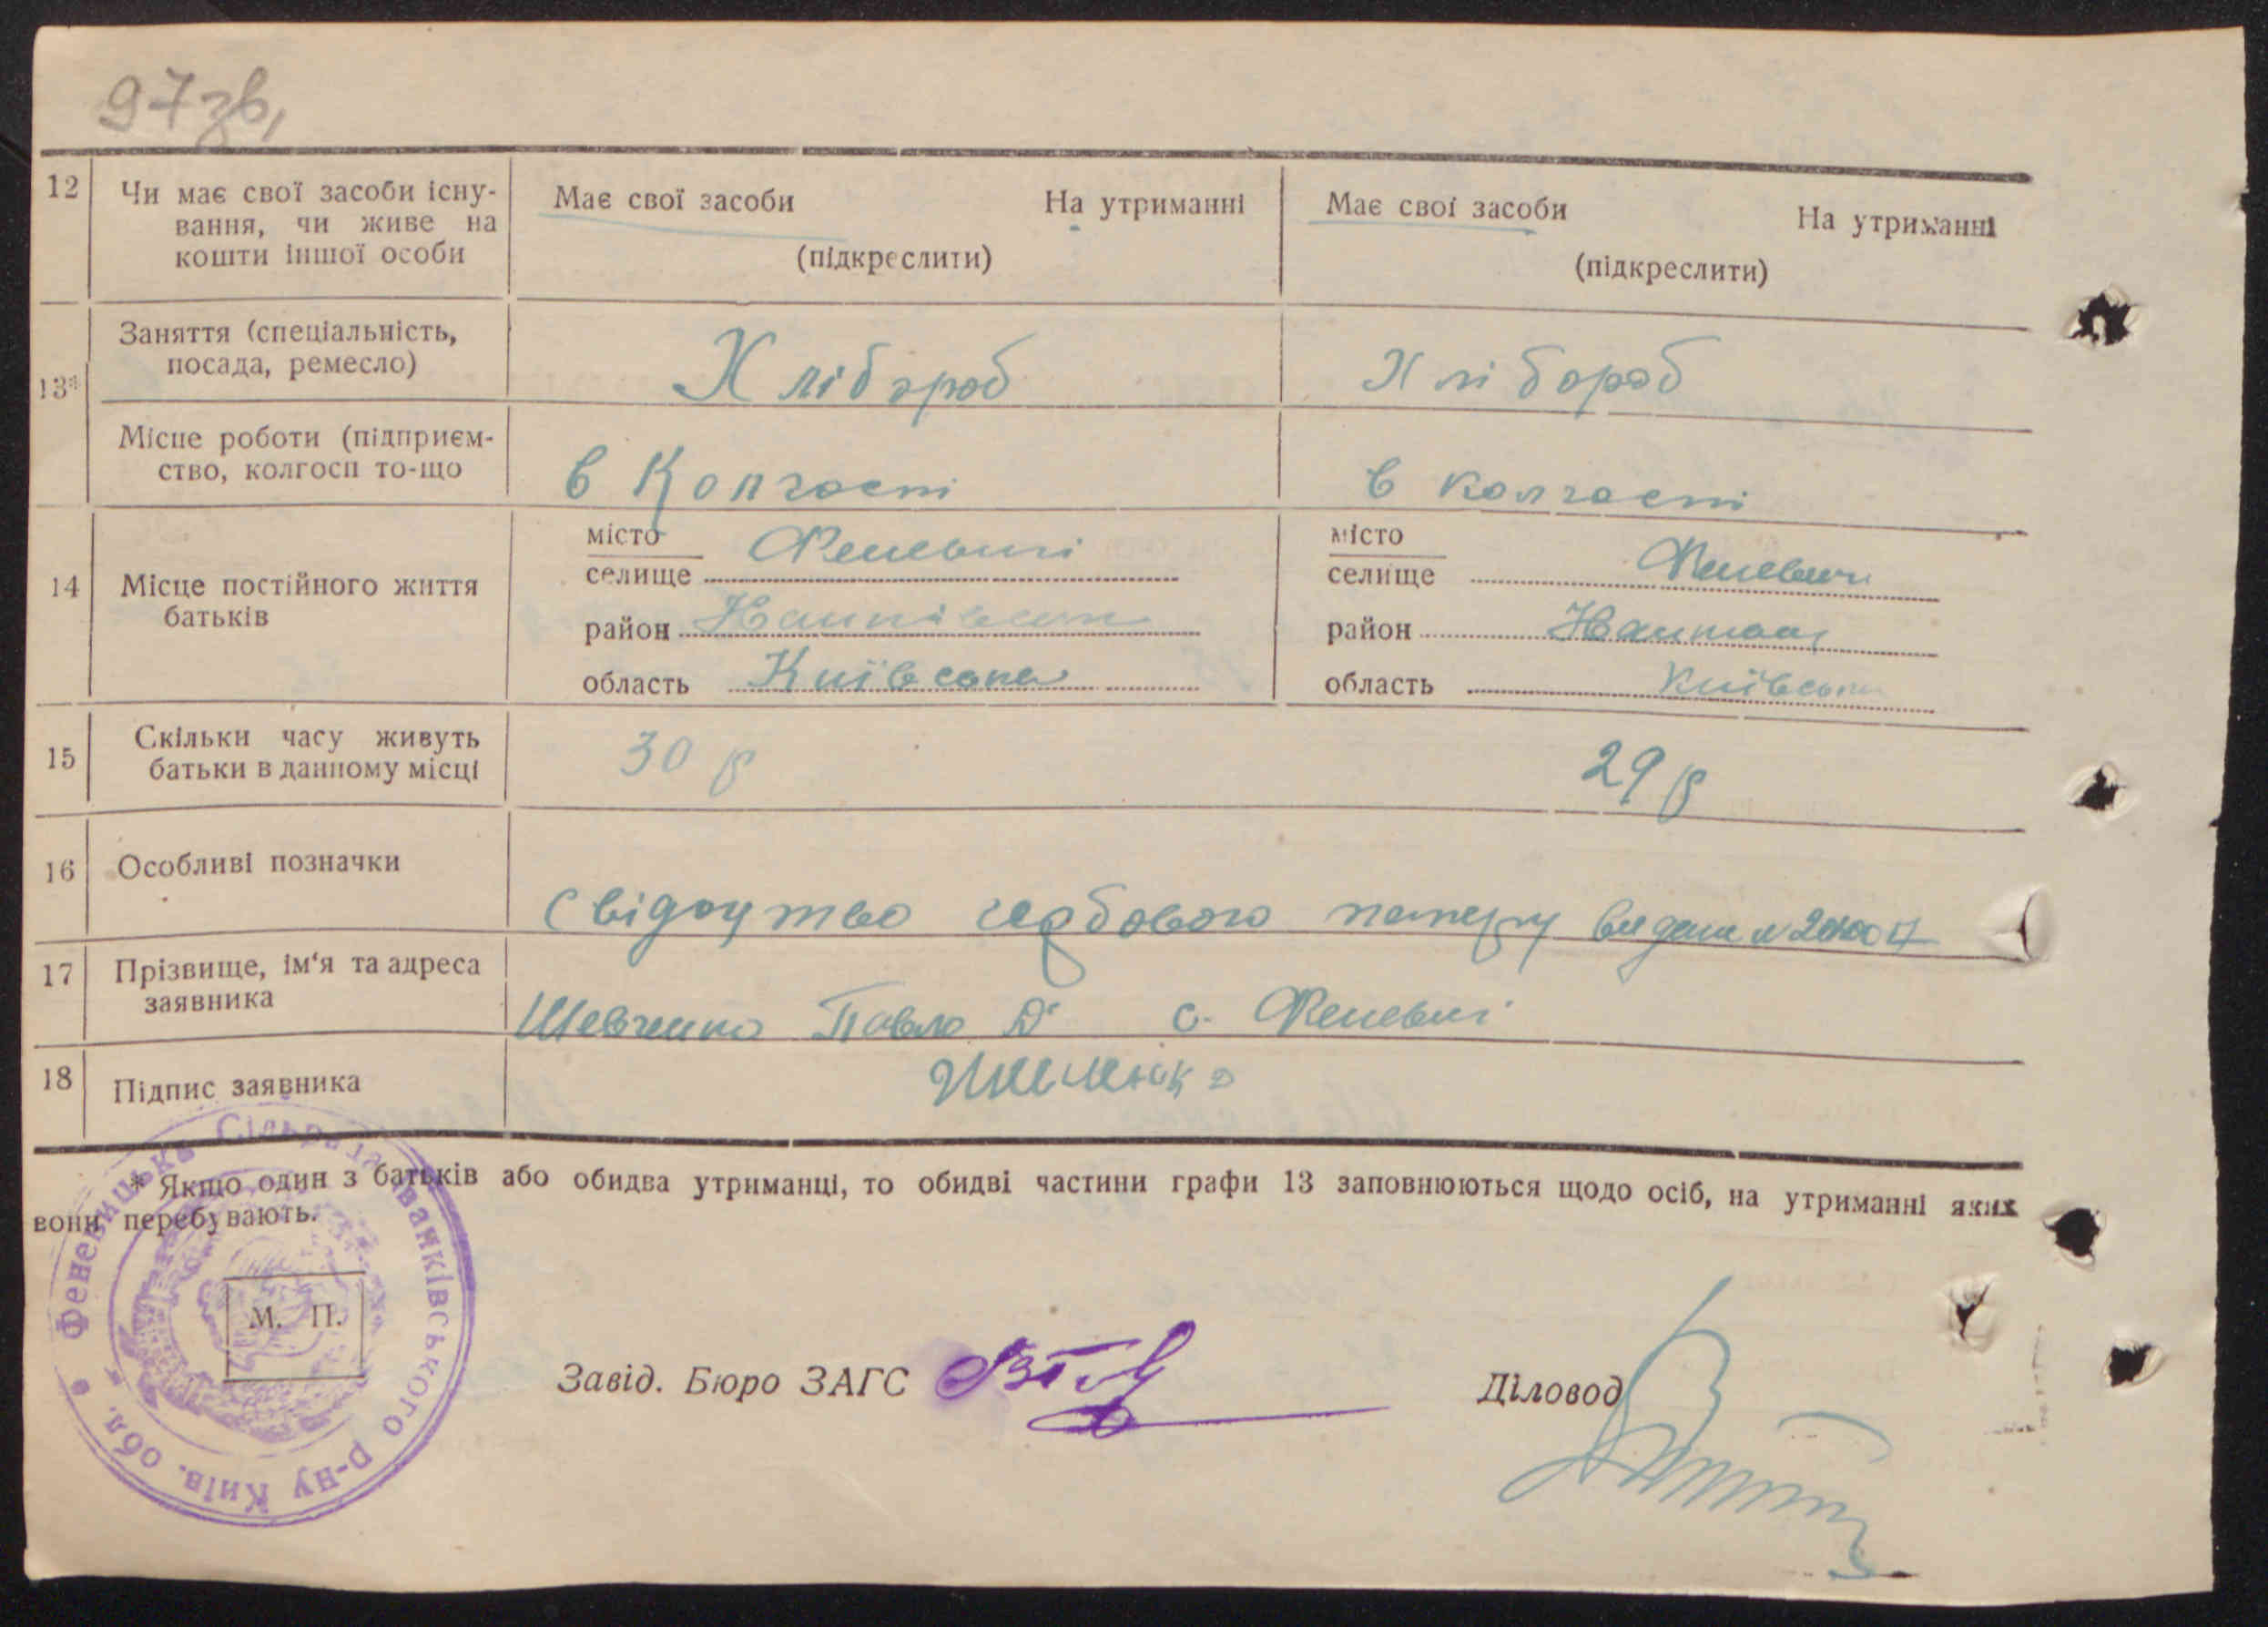 97зв,
12
Чи має свої засоби існу-
вання, чи живе на
кошти іншої особи
Має свої засоби На утриманні
(підкреслити)
Має свої засоби На утриманні
(підкреслити)
13*
Заняття (спеціальність,
посада, ремесло)
Хлібороб
Хлібороб
Місце роботи (підприєм-
ство, колгосп то-що
в Колгоспі
в колгоспі
14
Місце постійного життя
батьків
місто
селище Феневичі
район
область Київська
місто
селище Феневичі
район
область Київська
15
Скільки часу живуть
батьки в данному місці
30 р
29 р
16
Особливі позначки
Свідоцтво гербового паперу видане
17
Прізвище, ім'я та адреса
заявника
Шевченко Павло Д. с. Феневичі
18
Підпис заявника
* Якщо один з батьків або обидва утриманці, то обидві частини графи 13 заповнюються щодо осіб, на утриманні яких
вони перебувають.
Феневицька Сільрада Іванківського р-ну Київ. обл.
М. П.
Завід. Бюро ЗАГС
Діловод